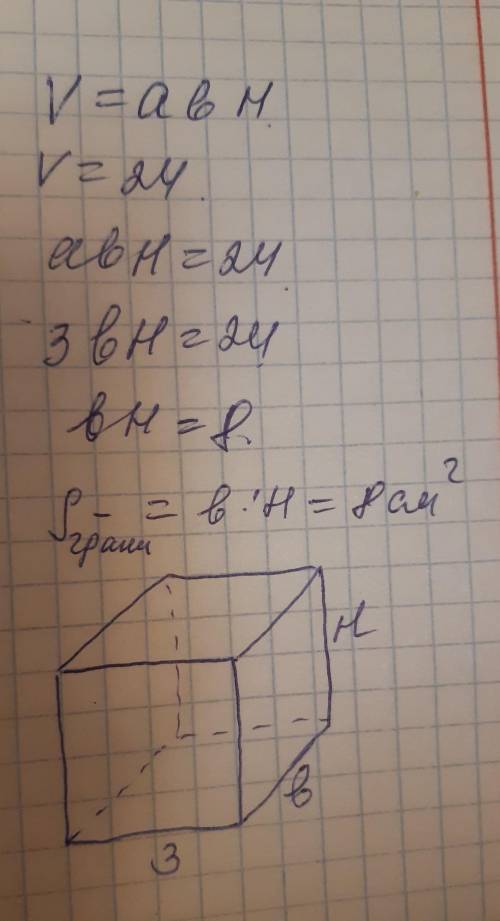 V = a b H
V = 24.
a b H = 24
3 b H = 24
b H = 8.
S грани = b · H = 8 см²
H
b
3